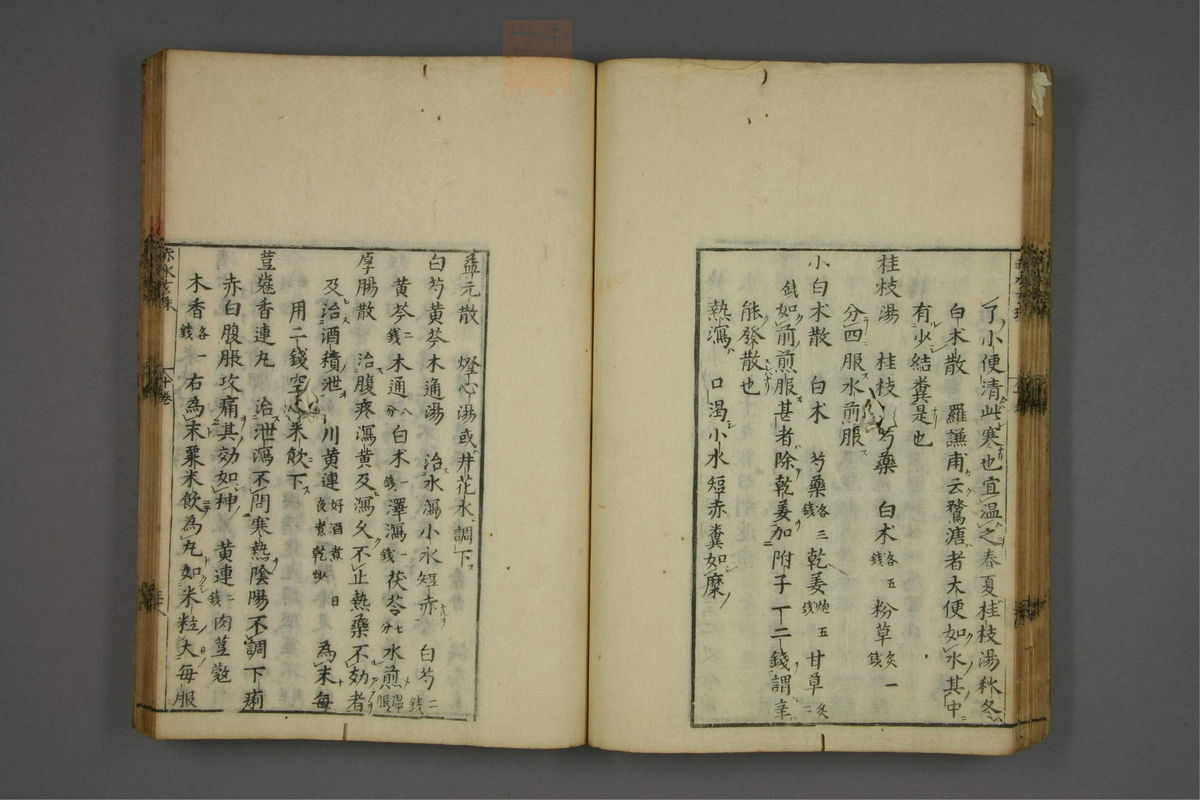 了小便清此寒也宜温之春夏桂枝湯秋冬
白朮散　羅謙甫云鶩溏者大便如水其中
有少結糞是也
桂枝湯　桂枝　芍藥　白朮各五錢　粉草炙一錢
分四服水煎服
小白朮散　白朮　芍藥各三錢　乾姜炮五錢　甘草炙二
錢如前煎服甚者除乾姜加附子一二錢謂辛
能發散也
熱瀉　口渴小水短赤糞如糜
益元散　燈心湯或井花水調下
白芍黄芩木通湯　治水瀉小水短赤　白芍二錢
黄芩二錢　木通八分　白朮一錢　澤瀉一錢　茯苓七分　水煎温服
厚腸散　治腹疼瀉黄及瀉久不止熱藥不効者
及治酒積泄　川黄連好酒煮一日夜煮乾　為末每
用二錢空心米飲下
荳蔻香連丸　治泄瀉不問寒熱陰陽不調下痢
赤白腹脹攻痛其効如神　黄連二錢　肉荳蔻
木香各一錢　右為末粟米飲為丸如米粒大每服
赤水玄珠
八卷